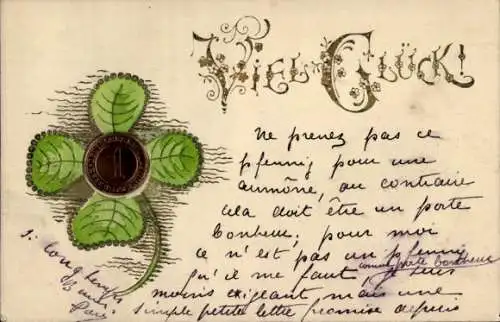 Viel Glück!
1
Ne prenez pas ce
pfennig pour une
aumône, au contraire
cela doit être un porte
bonheur, pour moi
ce n'est pas un pfennig
comme porte bonheur
qu'il me faut, je suis
moins exigeant mais une
simple petite lettre promise depuis
si longtemps